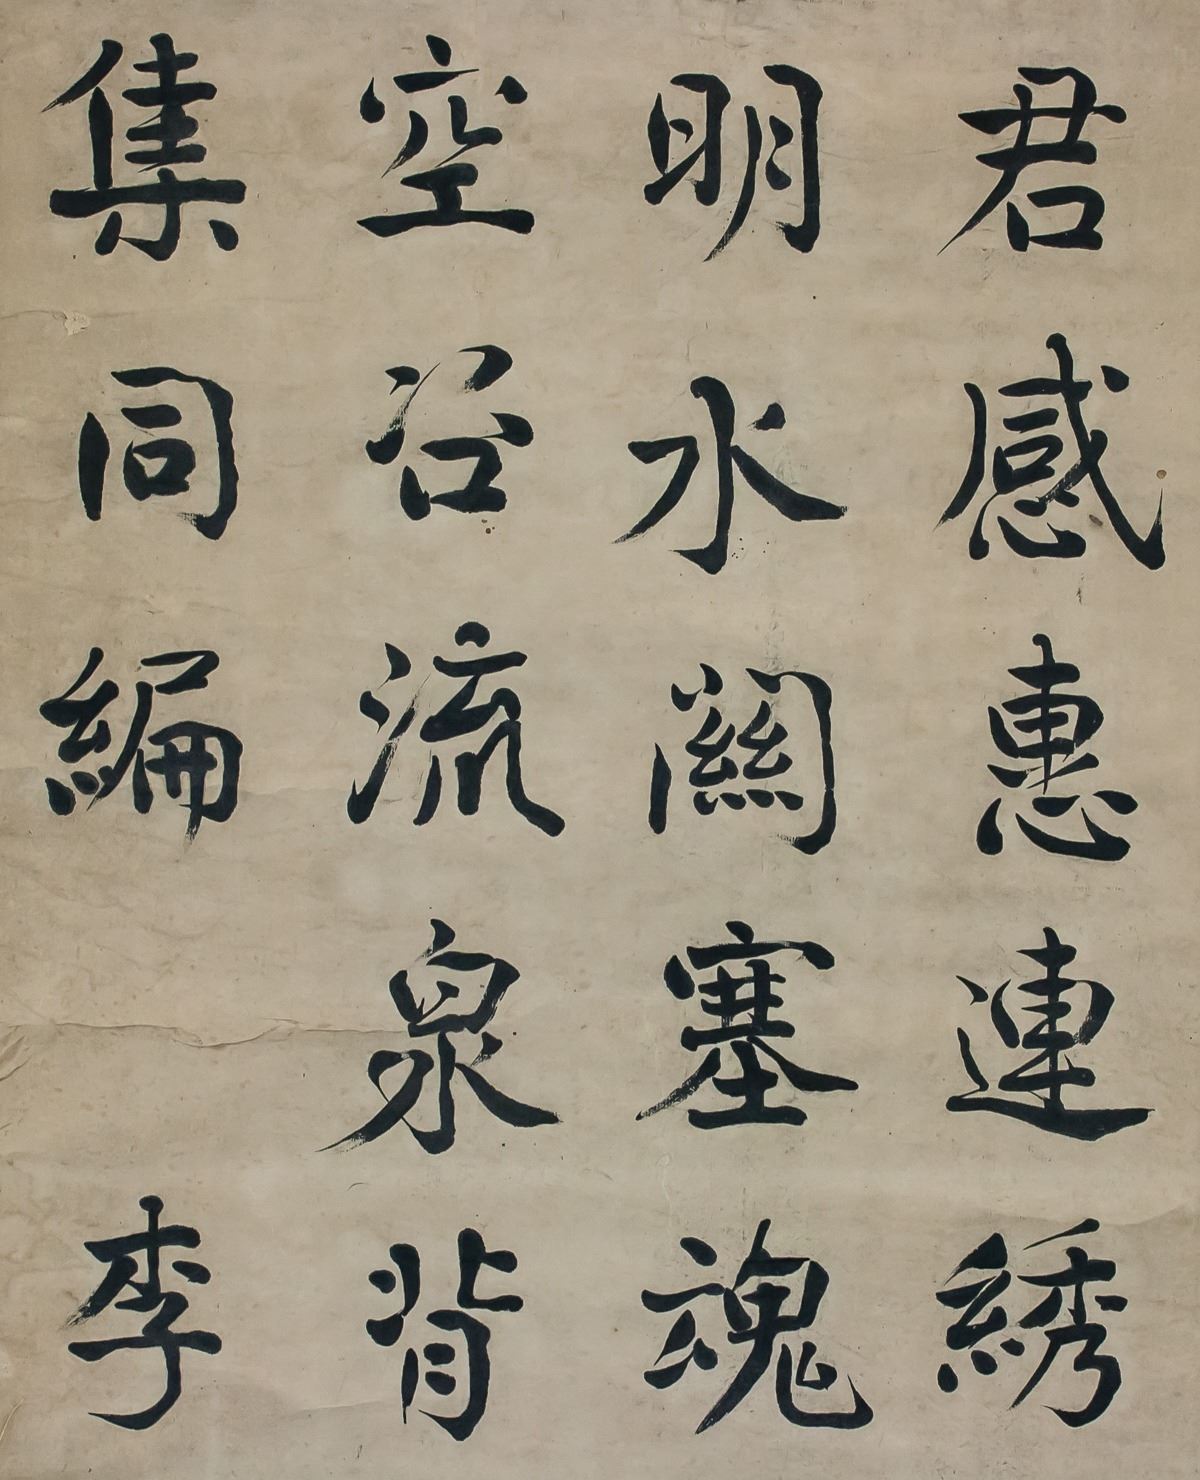 君感惠連綉
明水闗塞魂
空召流泉背
集同編李